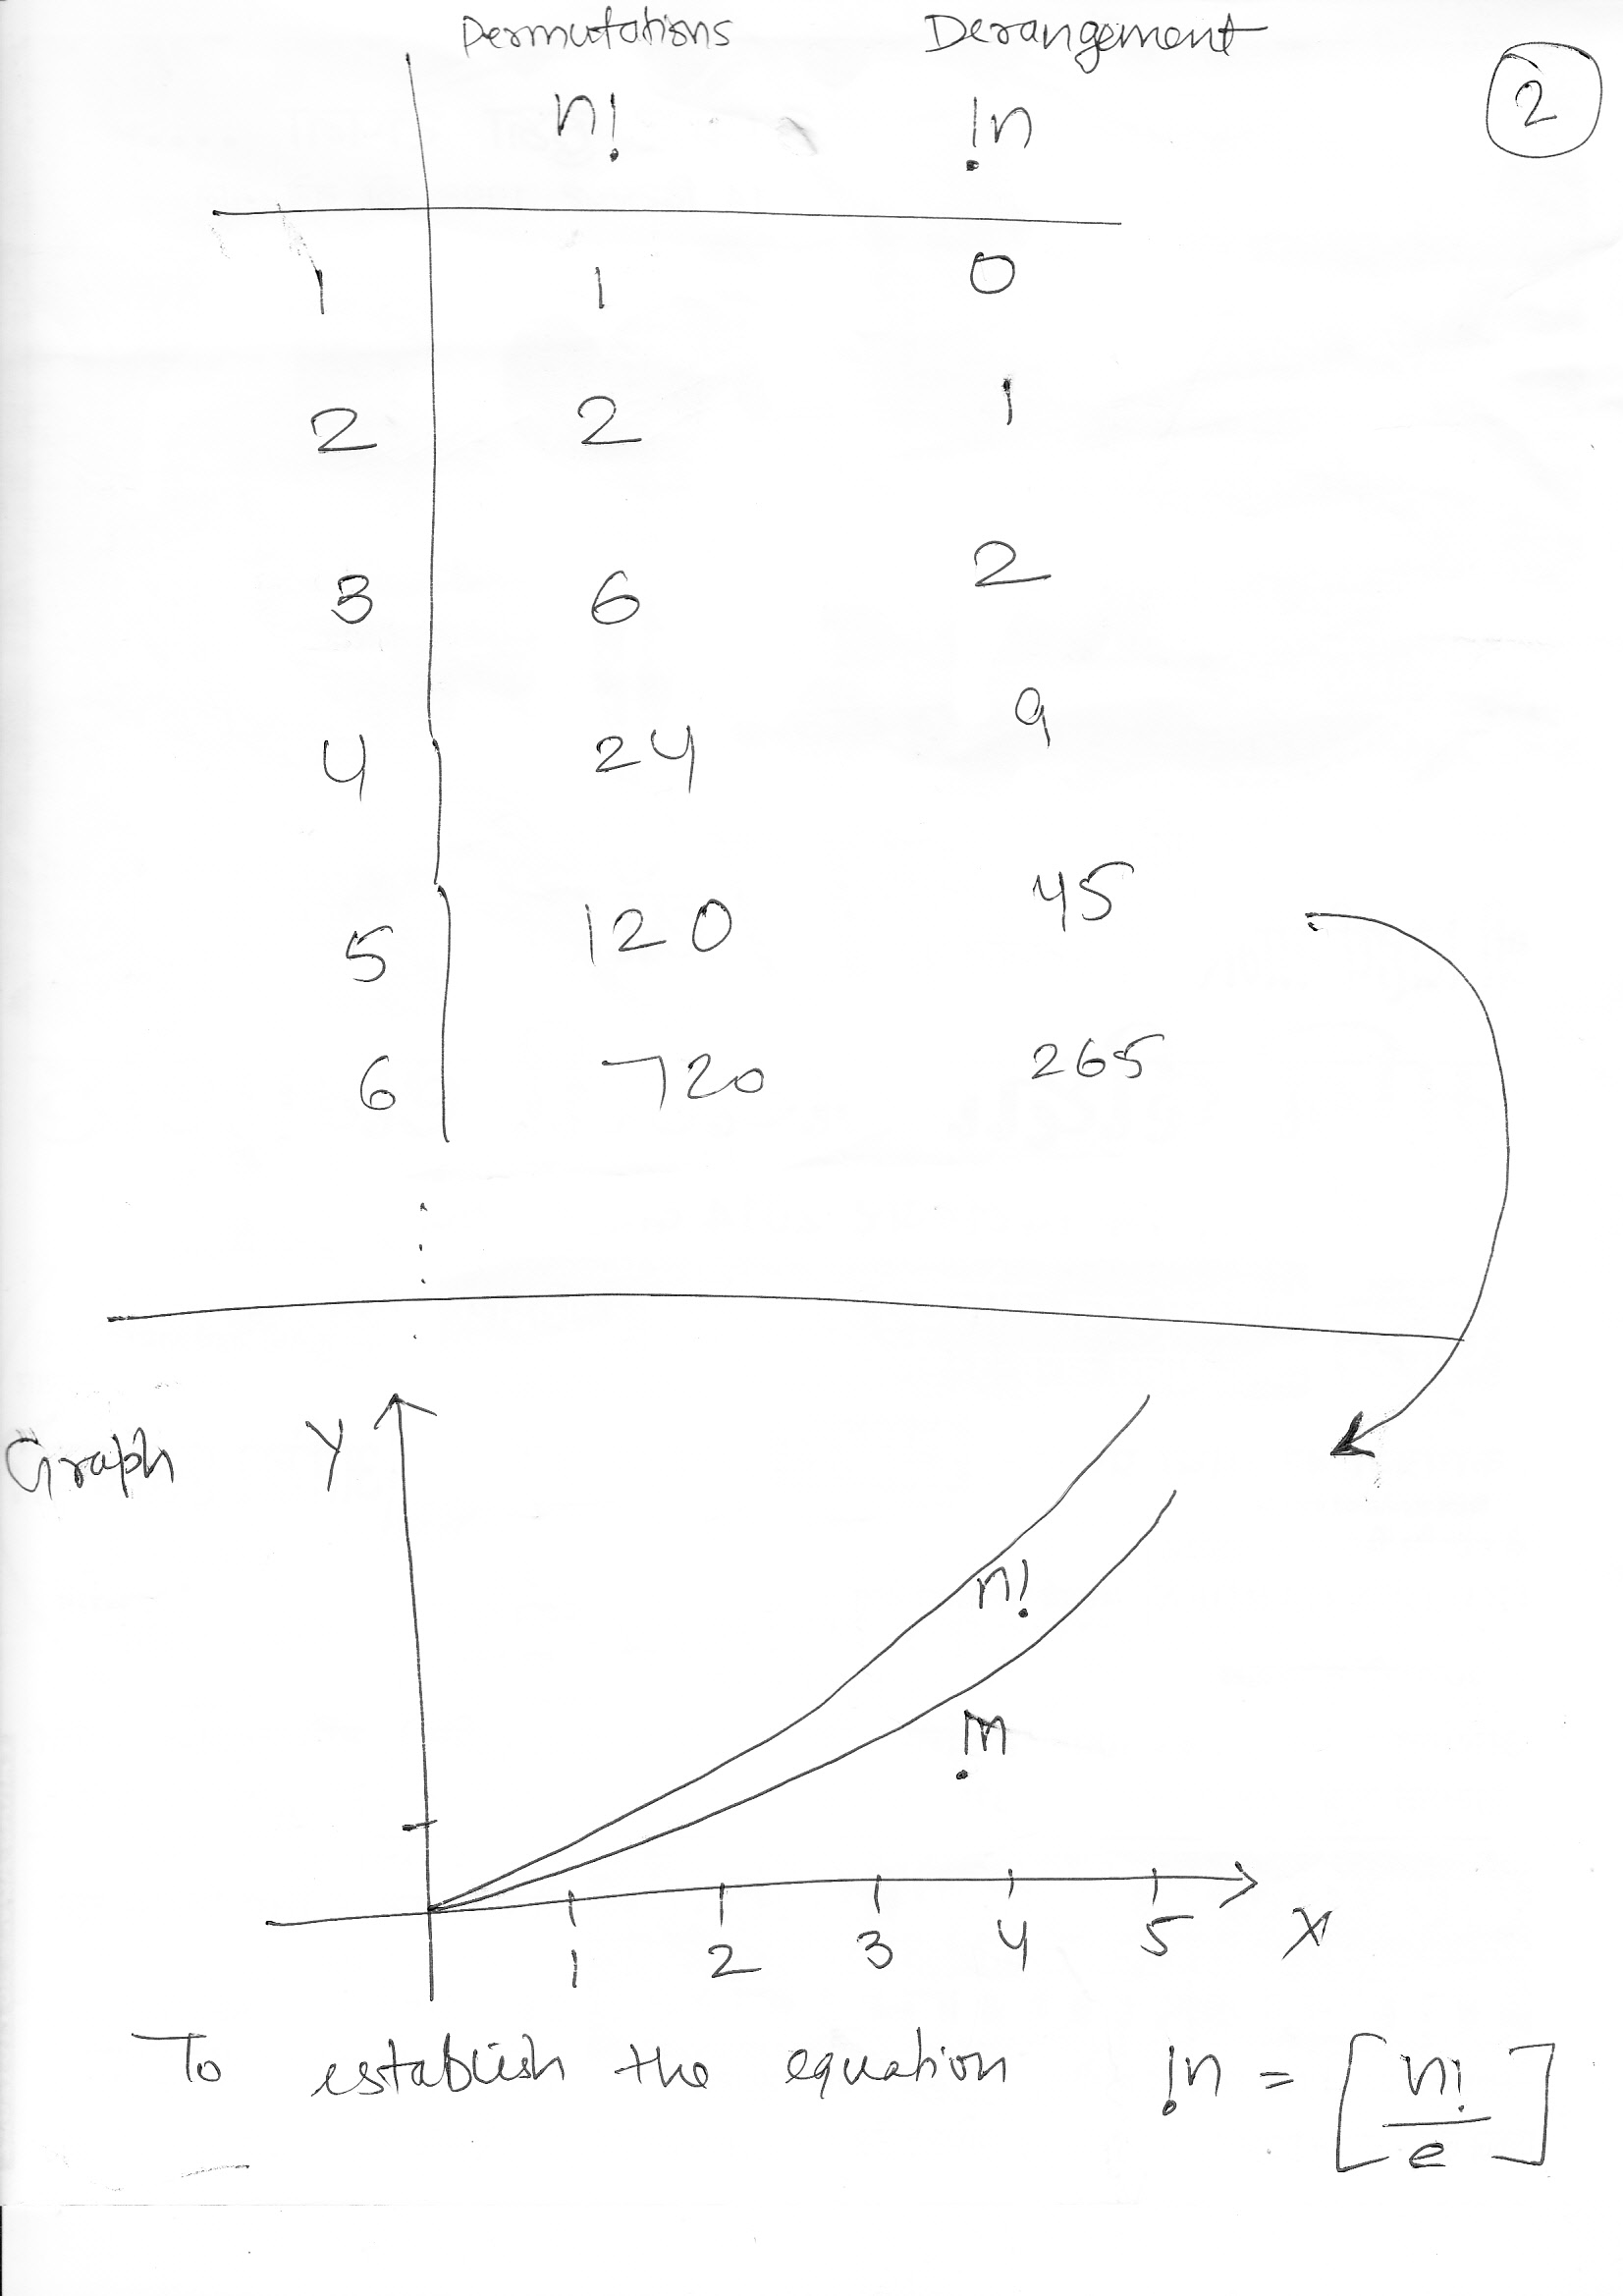 Permutations Derangement
n! !n
2
1 1 0
2 2 1
3 6 2
4 24 9
5 120 45
6 720 265
Graph Y
n!
!n
1 2 3 4 5 X
To establish the equation !n = [n!/e]